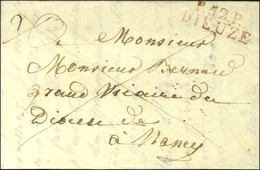 P.42.P.
DIEUZE
A Monsieur
Monsieur Bernard
Grand Vicaire du
Diocese de
à Nancy